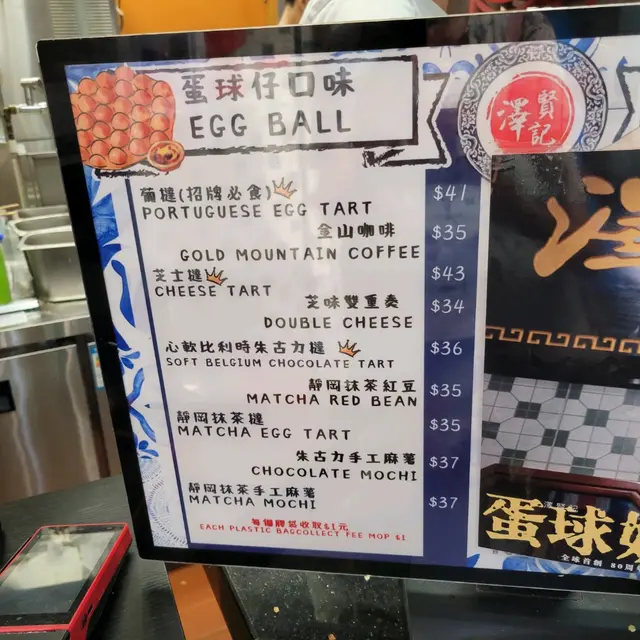 蛋球仔口味
EGG BALL
賢
澤記
葡撻(招牌必食)
PORTUGUESE EGG TART $41
金山咖啡
GOLD MOUNTAIN COFFEE $35
芝士撻
CHEESE TART $43
芝味雙重奏
DOUBLE CHEESE $34
心軟比利時朱古力撻
SOFT BELGIUM CHOCOLATE TART $36
靜岡抹茶紅豆
MATCHA RED BEAN $35
靜岡抹茶撻
MATCHA EGG TART $35
朱古力手工麻薯
CHOCOLATE MOCHI $37
靜岡抹茶手工麻薯
MATCHA MOCHI $37
每個膠袋收取$1元
EACH PLASTIC BAGCOLLECT FEE MOP $1
蛋球
全球首創 80周